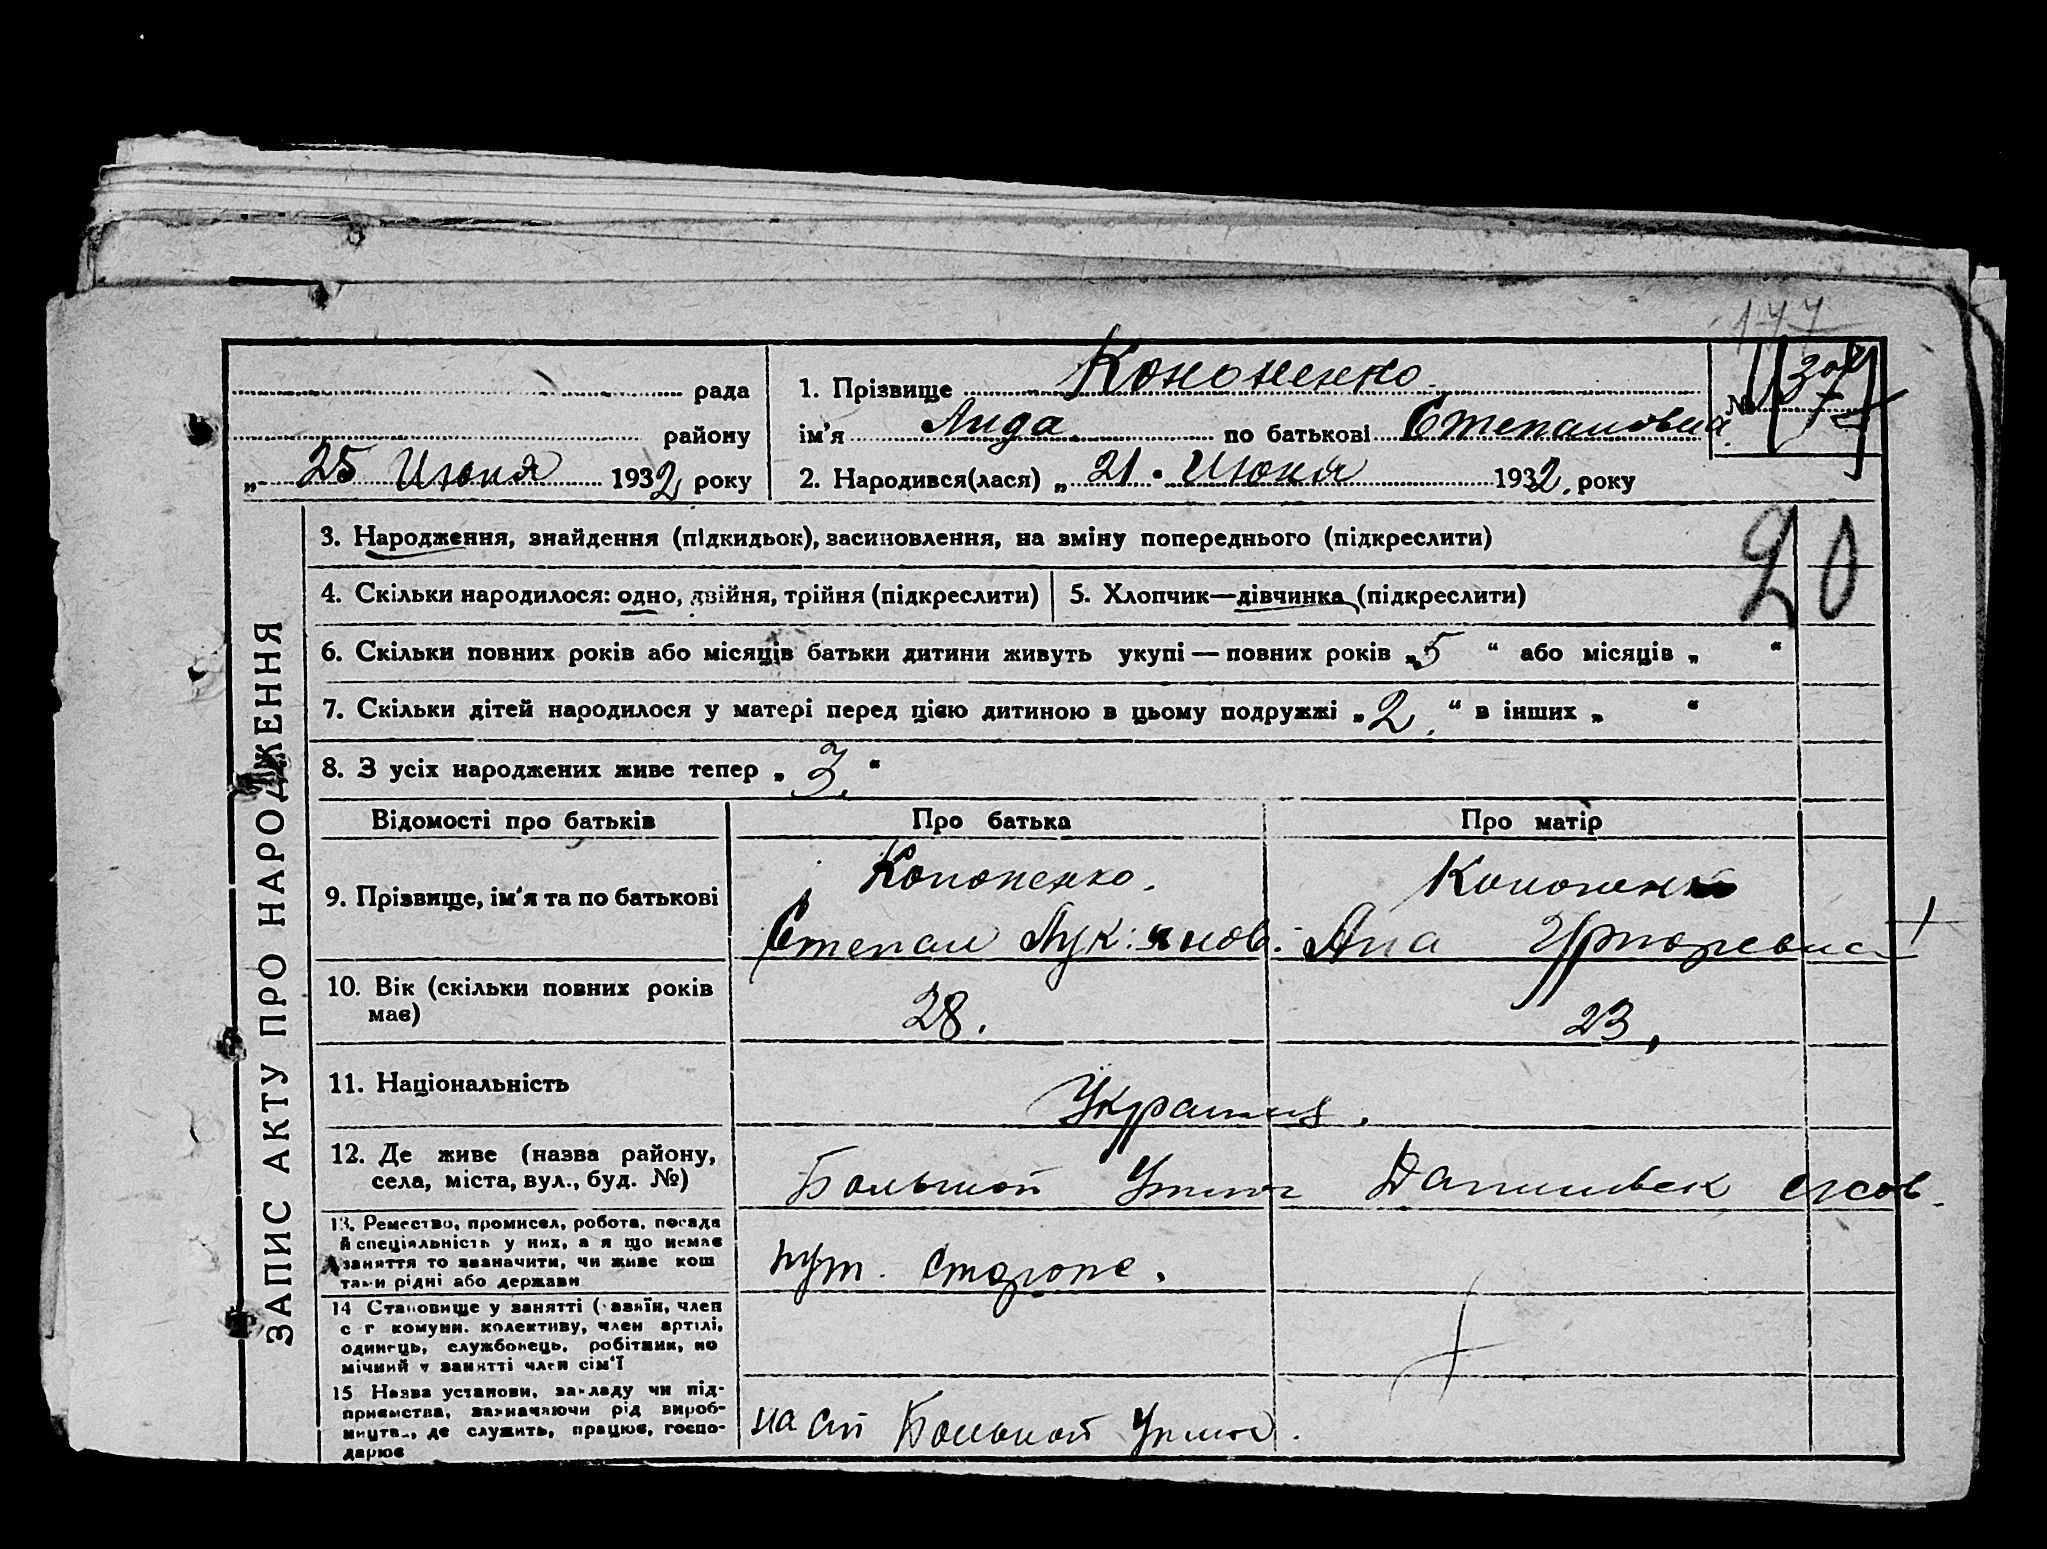 177
рада
району
„ 25 Июня 1932 року
1. Прізвище Кононенко
ім'я Лида по батькові Степановна
2. Народився(лася) „ 21 " Июня 1932. року
№
20
ЗАПИС АКТУ ПРО НАРОДЖЕННЯ
3. Народження, знайдення (підкидьок), засиновлення, на зміну попереднього (підкреслити)
4. Скільки народилося: одно, двійня, трійня (підкреслити)
5. Хлопчик—дівчинка (підкреслити)
6. Скільки повних років або місяців батьки дитини живуть укупі — повних років „ 5 “ або місяців „ “
7. Скільки дітей народилося у матері перед цією дитиною в цьому подружжі „ 2. “ в інших „ “
8. З усіх народжених живе тепер „ 3. “
Відомості про батьків
Про батька
Про матір
9. Прізвище, ім'я та по батькові
Кононенко.
Степан Лук:янов.
Кононенко
Ана
10. Вік (скільки повних років
має)
28.
23,
11. Національність
12. Де живе (назва району,
села, міста, вул., буд. №)
Большой
13. Ремество, промисел, робота, посада
й спеціяльність у них, а я що немає
заняття то зазначити, чи живе кош
тами рідні або держави
пут. стороже.
14 Становище у занятті ( азяїн, член
с г комуни. колективу, член артілі,
одинець, службовець, робітник, по
мічний у занятті член сім'ї
15 Назва установи, закладу чи під-
приємства, зазначаючи рід вироб-
ництв., де служить, працює, госпо-
дарює
на ст Большой